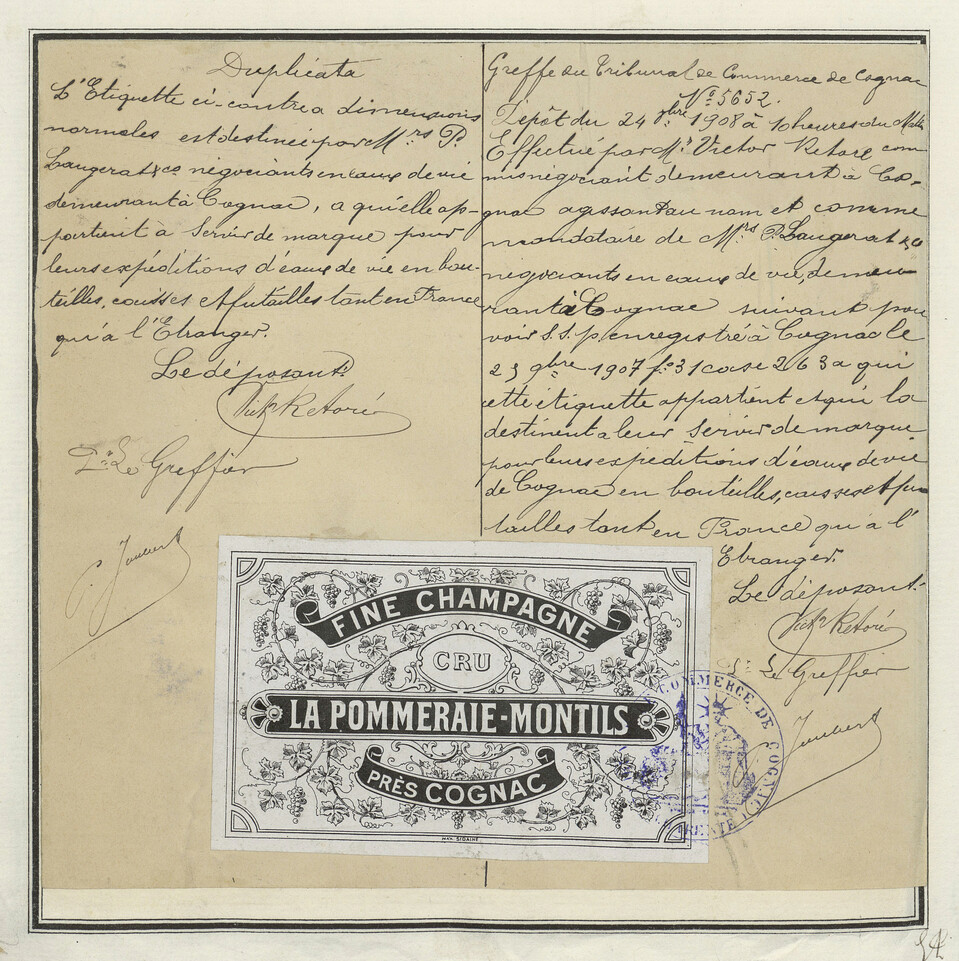 Duplicata
L'Etiquette ci-contre a dimensions
normales est destinée par Mrs P.
Laugerat & co négociants en eaux de vie
demeurant à Cognac, a qui elle ap-
partient à servir de marque pour
leurs expéditions d'eaux de vie en bou-
teilles, caisses et futailles tant en France
qu'à l'Etranger.
Le déposant
Vict. Retoré
Le Greffier
Joubert
Greffe du Tribunal de Commerce de Cognac
No 5652.
Dépôt du 24 9bre 1908 à 10 heures du Matin
Effectué par Mr Victor Retoré com
mis négociant demeurant à Co-
gnac agissant au nom et comme
mandataire de Mrs P. Laugerat & co
négociants en eaux de vie, demeu
rant à Cognac suivant pou
voir S.S.P. enregistré à Cognac le
25 9bre 1907 fo 31 case 263 a qui
cette étiquette appartient et qui la
destinent a leur servir de marque
pour leurs expéditions d'eaux de vie
de Cognac en bouteilles, caisses et fu
tailles tant en France qu'à l'
Etranger.
Le déposant
Vict. Retoré
Le Greffier
Joubert
FINE CHAMPAGNE
CRU
LA POMMERAIE-MONTILS
PRÈS COGNAC
COMMERCE DE COGNAC